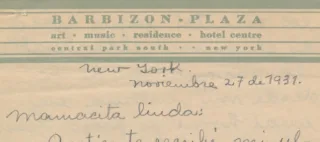 BARBIZON - PLAZA
art · music · residence · hotel centre
central park south · · new york
New York.
noviembre 27 de 1931.
Mamacita linda: